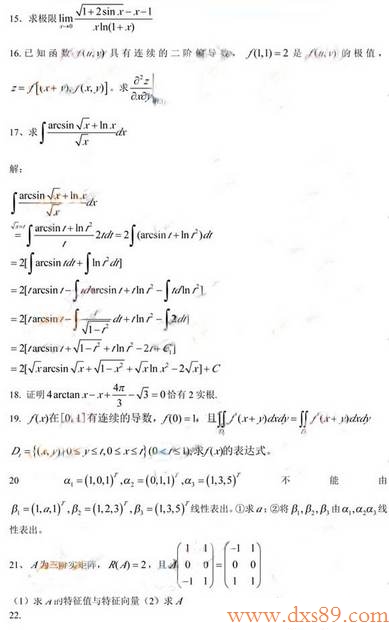 15、求极限 lim x→0 (√(1+2sin x) - x - 1) / (x ln(1+x))
16.已知函数 f(u,v) 具有连续的二阶偏导数, f(1,1)=2 是 f(u,v) 的极值,
z = f[(x+y), f(x,y)]。求 ∂²z/∂x∂y
17、求 ∫ (arcsin √x + ln x)/√x dx
解:
∫ (arcsin √x + ln x)/√x dx
√x=t = ∫ (arcsin t + ln t²)/t 2tdt = 2∫(arcsin t + ln t²)dt
= 2[∫ arcsin tdt + ∫ ln t² dt]
= 2[t arcsin t - ∫ td arcsin t + t ln t² - ∫ td ln t²]
= 2[t arcsin t - ∫ t/√(1-t²) dt + t ln t² - ∫ 2dt]
= 2[t arcsin t + √(1-t²) + t ln t² - 2t + C₁]
= 2[√x arcsin √x + √(1-x²) + √x ln x² - 2√x] + C
18. 证明 4arctan x - x + 4π/3 - √3 = 0 恰有 2 实根.
19. f(x)在[0,1]有连续的导数, f(0)=1, 且 ∬ f'(x+y)dxdy = ∬ f'(x+y)dxdy
Dₜ = {(x,y)|0 ≤ y ≤ t, 0 ≤ x ≤ t}(0 < t ≤ 1), 求f(x)的表达式。
20 α₁ = (1,0,1)ᵀ, α₂ = (0,1,1)ᵀ, α₃ = (1,3,5)ᵀ 不 能 由
β₁ = (1,a,1)ᵀ, β₂ = (1,2,3)ᵀ, β₃ = (1,3,5)ᵀ 线性表出。①求 a; ②将 β₁, β₂, β₃ 由 α₁, α₂ α₃ 线
性表出。
21、A为三阶实矩阵, R(A)=2, 且 A (1 1; 0 0; -1 1) = (-1 1; 0 0; 1 1)
(1) 求 A 的特征值与特征向量 (2) 求 A
22.
www.dxs89.com